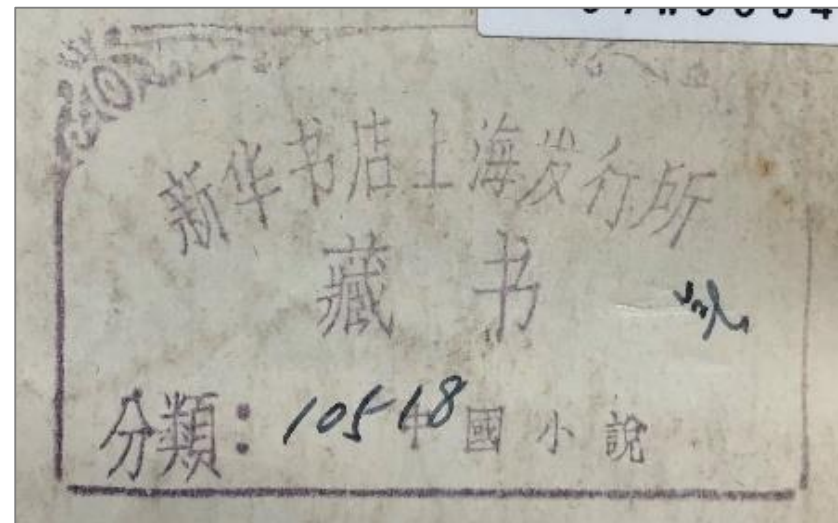 新华书店上海发行所
藏书
分類：10518中國小說